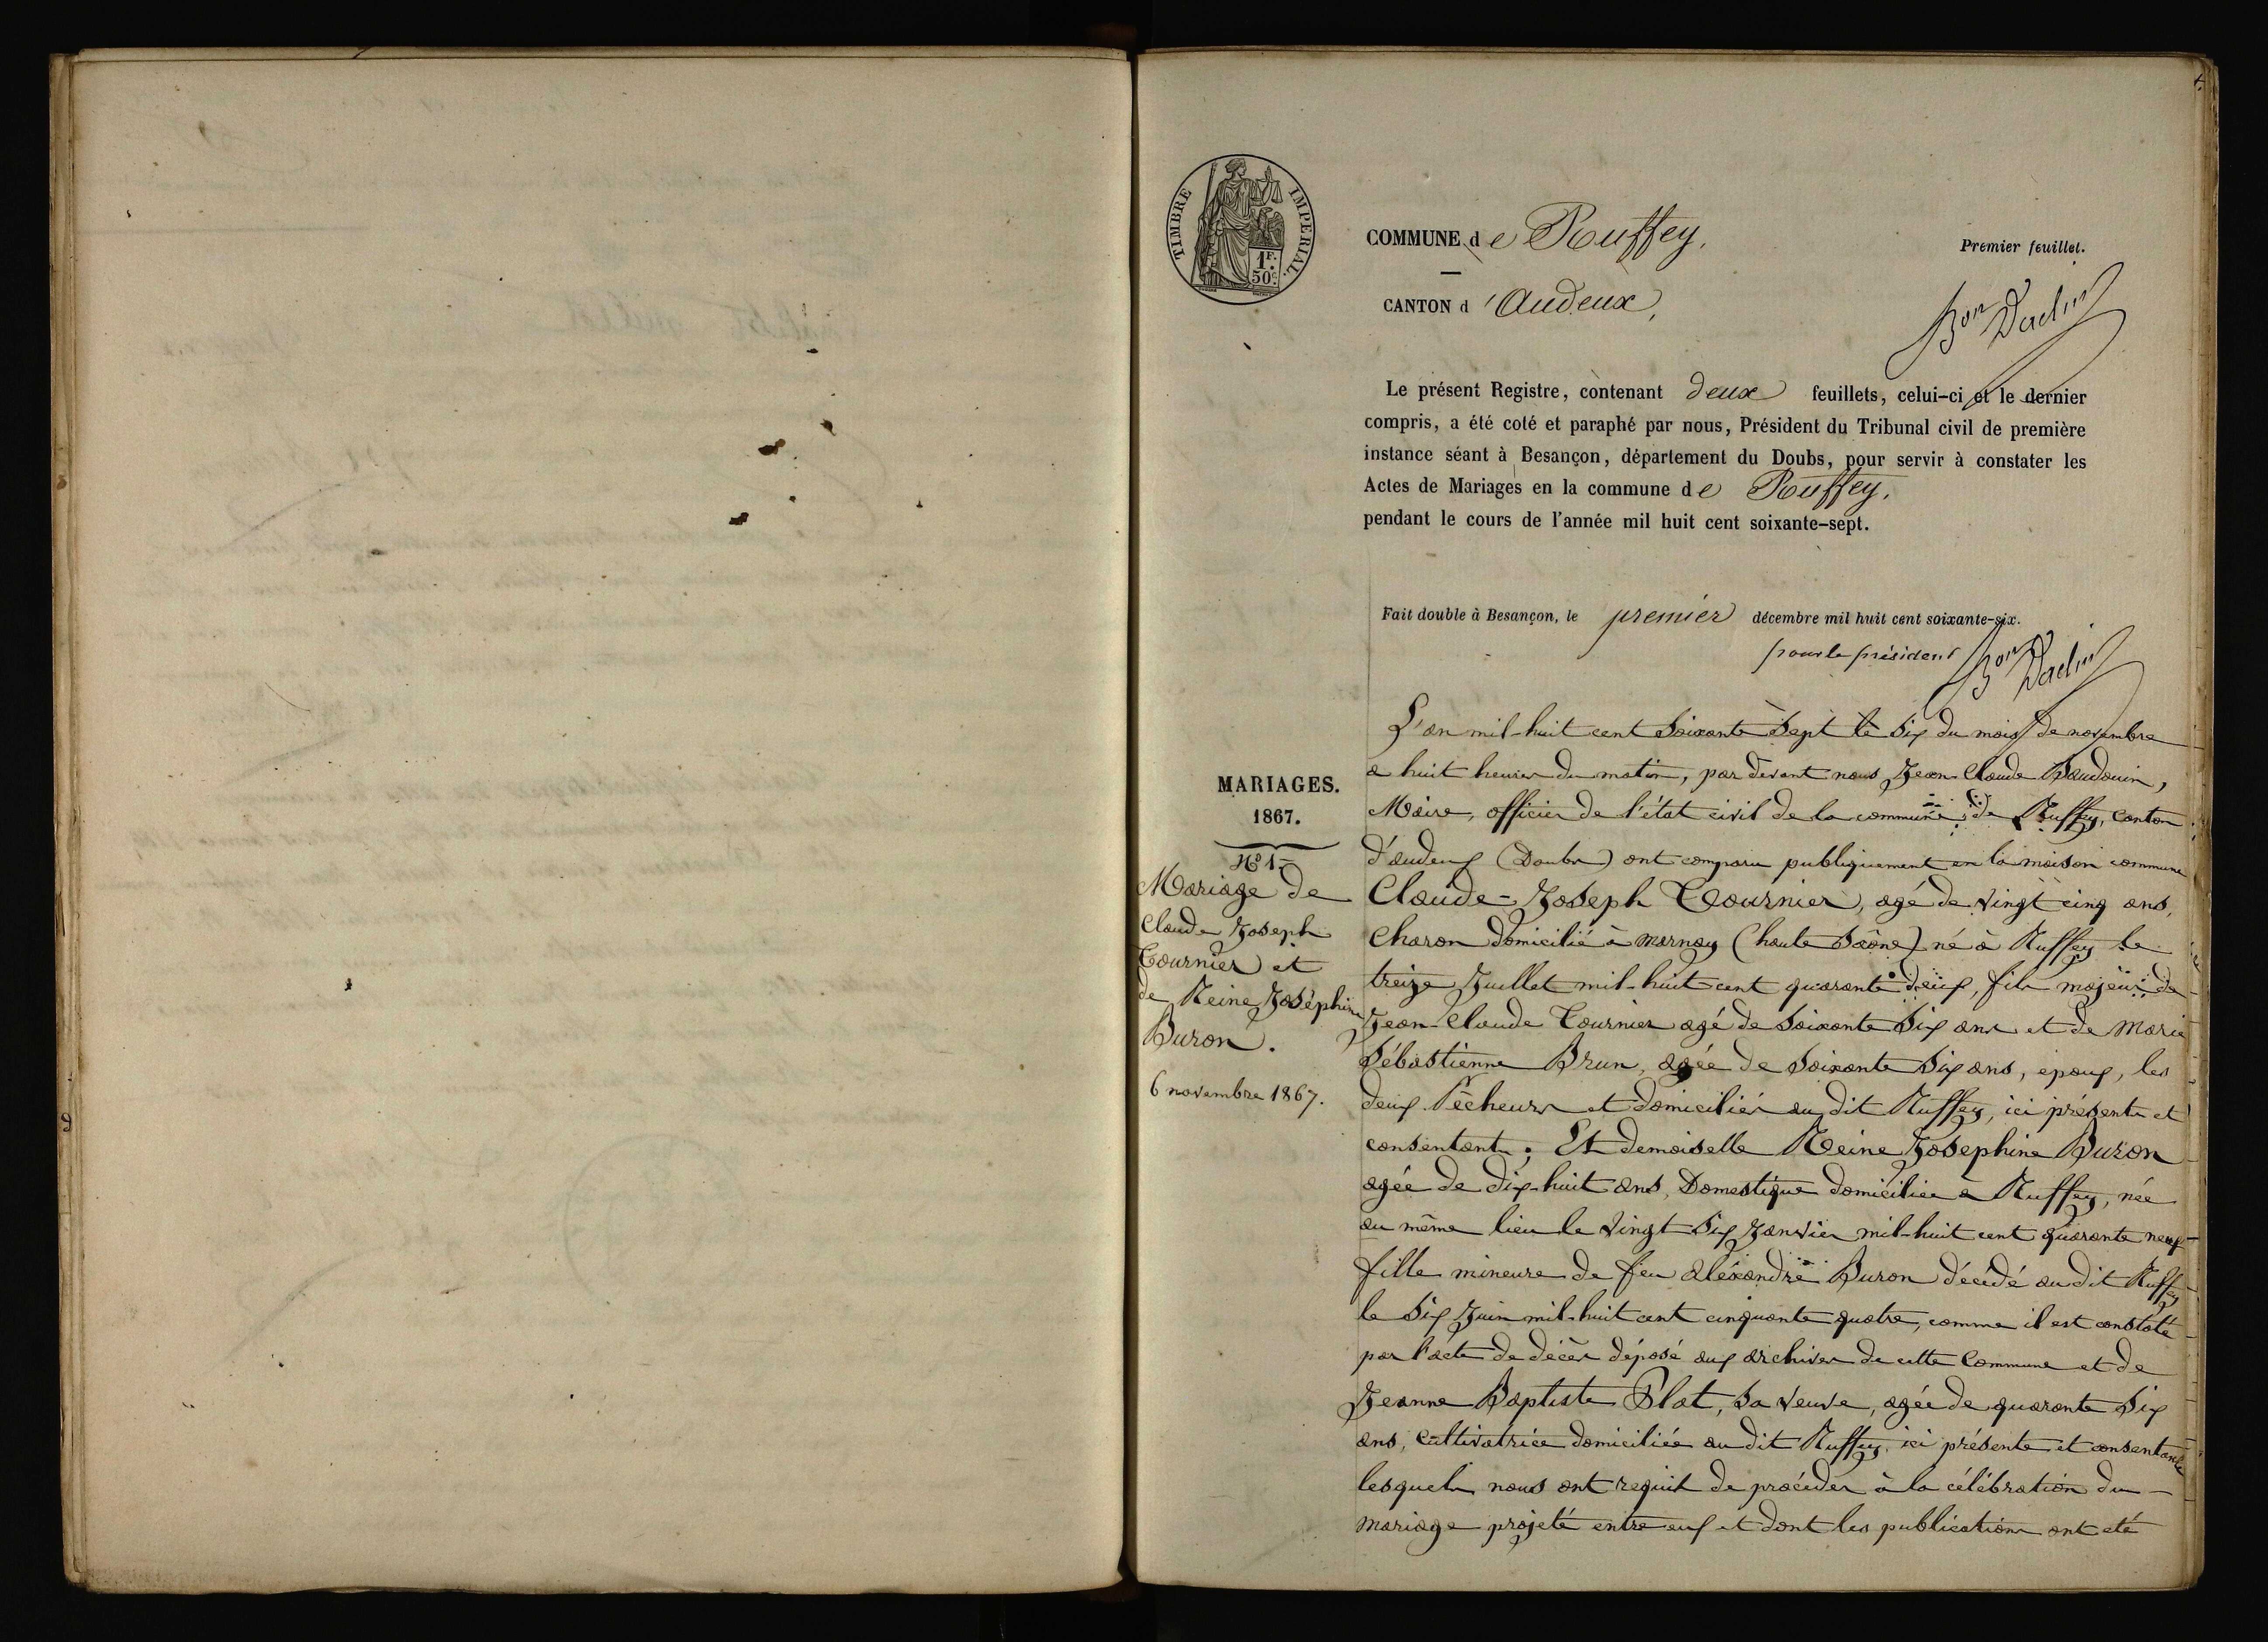 TIMBRE IMPERIAL.
1F.
50c.
COMMUNE de Rouffey.
Premier feuillet.
CANTON d'Audeux,
Bon Daclin
Le présent Registre, contenant deux feuillets, celui-ci et le dernier
compris, a été coté et paraphé par nous, Président du Tribunal civil de première
instance séant à Besançon, département du Doubs, pour servir à constater les
Actes de Mariages en la commune de Rouffey.
pendant le cours de l'année mil huit cent soixante-sept.
Fait double à Besançon, le premier décembre mil huit cent soixante-six.
pour le président
Bon Daclin
MARIAGES.
1867.
N° 1
Mariage de
Claude Joseph
Tournier et
de Reine Joséphine
Buron.
6 novembre 1867.
L'an mil-huit cent soixante sept le six du mois de novembre
a huit heures du matin, par devant nous Jean Claude Baudouin,
Maire, officier de l'état civil de la commune de Ruffey, canton
d'audeux (Doubs) ont comparu publiquement en la maison commune
Claude-Joseph Tournier, agé de vingt cinq ans,
Charon domicilié à marnay (haute Saône) né à Ruffey le
treize Juillet mil-huit-cent quarante deux, fils majeur de
Jean-Claude Tournier agé de soixante six ans et de Marie
Sébastienne Brun, agée de soixante six ans, epoux, les
deux Pêcheurs et domiciliés au dit Ruffey, ici présents et
consentants; Et demoiselle Reine Josephine Buron
agée de dix-huit ans, Domestique domiciliée a Ruffey, née
au même lieu le vingt six Janvier mil-huit cent quarante neuf
fille mineure de feu aléxandre Buron décédé au dit Ruffey
le six Juin mil-huit cent cinquante quatre, comme il est constaté
par l'acte de décès déposé aux archives de cette Commune et de
Jeanne Baptiste Plat, sa veuve, agée de quarante six
ans, cultivatrice domiciliée au dit Ruffey, ici présente et consentante
lesquels nous ont requit de procéder à la célébration du
mariage projeté entre eux et dont les publications ont eté